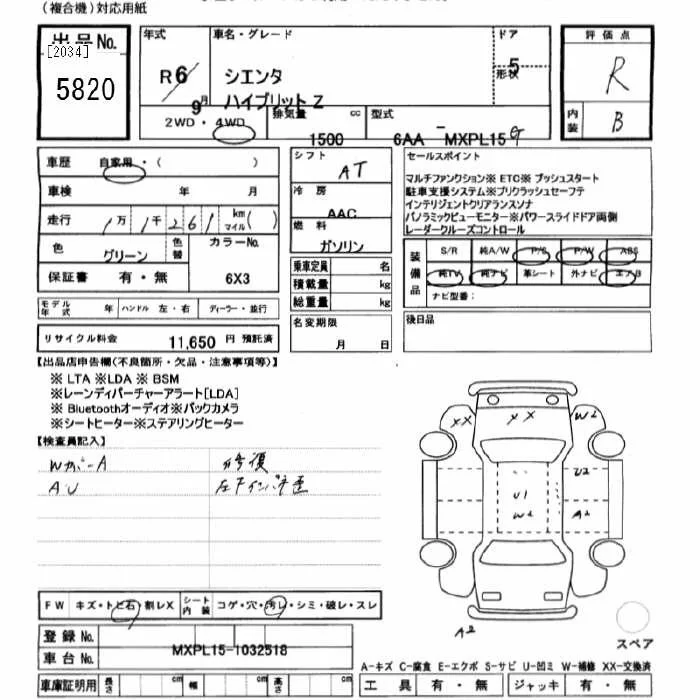 (複合機)対応用紙
出品No. [2034] 5820
年式 R6/9月
車名・グレード シエンタ ハイブリット Z
ドア 5 形状
2WD・4WD
排気量 1500 cc
型式 6AA - MXPL15G
評価点 R
内装 B
車歴 自家用・( )
車検 年 月
走行 1万1千261 km マイル( )
色 グリーン 色替 カラーNo. 6X3
保証書 有・無
モデル年式 年 ハンドル 左・右 ディーラー・並行
リサイクル料金 11,650 円 預託済
シフト AT
冷房 AAC
燃料 ガソリン
乗車定員 名
積載量 kg
総重量 kg
名変期限 月 日
セールスポイント
マルチファンクション※ ETC※ プッシュスタート
駐車支援システム※プリクラッシュセーフテ
インテリジェントクリアランスソナ
パノラミックビューモニター※パワースライドドア両側
レーダークルーズコントロール
装備品 S/R 純A/W P/S P/W ABS
純TV 純ナビ 革シート 外ナビ エアB
ナビ型番:
後日品
【出品店申告欄(不良箇所・欠品・注意事項等)】
※ LTA ※LDA ※ BSM
※レーンディパーチャーアラート[LDA]
※ Bluetoothオーディオ※バックカメラ
※シートヒーター※ステアリングヒーター
【検査員記入】
Wカバ-A 修復
A.U 左下インパネ歪
XX XX W2
U2
U1
W2 A2
A2
スペア
FW キズ・トビ石・割レX シート内装 コゲ・穴・汚レ・シミ・破レ・スレ
登録No.
車台No. MXPL15-1032518
A-キズ C-腐食 E-エクボ S-サビ U-凹ミ W-補修 XX-交換済
車庫証明用 長さ cm 幅 cm 高さ cm
工具 有・無 ジャッキ 有・無